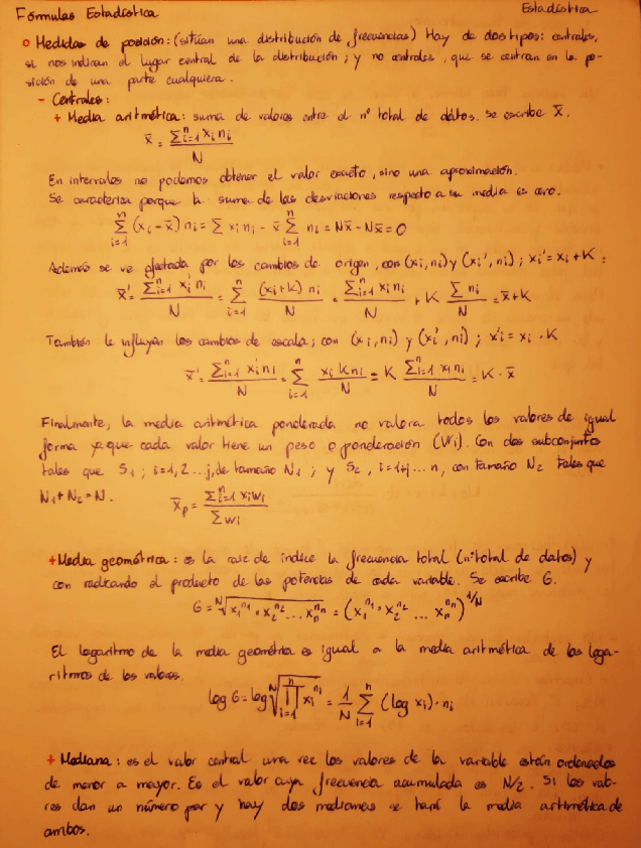 Fórmulas Estadística
Estadística
Medidas de posición: (sitúan una distribución de frecuencias) Hay de dos tipos: centrales,
si nos indican el lugar central de la distribución; y no centrales, que se centran en la po-
sición de una parte cualquiera.
- Centrales:
+ Media aritmética: suma de valores entre el nº total de datos. Se escribe x̄.
x̄ = Σⁿᵢ₌₁ xᵢ nᵢ / N
En intervalos no podemos obtener el valor exacto, sino una aproximación.
Se caracteriza porque la suma de las desviaciones respecto a su media es cero.
Σⁿᵢ₌₁ (xᵢ - x̄) nᵢ = Σ xᵢ nᵢ - x̄ Σⁿᵢ₌₁ nᵢ = Nx̄ - Nx̄ = 0
Además se ve afectada por los cambios de origen, con (xᵢ, nᵢ) y (xᵢ', nᵢ); xᵢ' = xᵢ + K:
x̄' = Σⁿᵢ₌₁ xᵢ' nᵢ / N = Σⁿᵢ₌₁ (xᵢ + K) nᵢ / N = Σⁿᵢ₌₁ xᵢ nᵢ / N + K Σ nᵢ / N = x̄ + K
También le influyen los cambios de escala; con (xᵢ, nᵢ) y (xᵢ', nᵢ); xᵢ' = xᵢ · K
x̄' = Σⁿᵢ₌₁ xᵢ' nᵢ / N = Σⁿᵢ₌₁ xᵢ K nᵢ / N = K Σⁿᵢ₌₁ xᵢ nᵢ / N = K · x̄
Finalmente, la media aritmética ponderada no valora todos los valores de igual
forma ya que cada valor tiene un peso o ponderación (Wᵢ). Con dos subconjuntos
tales que S₁; i=1,2...j, de tamaño N₁; y S₂, i=1+j...n, con tamaño N₂ tales que
N₁ + N₂ = N. x̄ₚ = Σⁿᵢ₌₁ xᵢ wᵢ / Σ wᵢ
+ Media geométrica: es la raíz de índice la frecuencia total (nº total de datos) y
con radicando el producto de las potencias de cada variable. Se escribe G.
G = ᴺ√(x₁ⁿ¹ · x₂ⁿ² ... xₙⁿⁿ) = (x₁ⁿ¹ · x₂ⁿ² ... xₙⁿⁿ)^1/N
El logaritmo de la media geométria es igual a la media aritmética de los loga-
ritmos de los valores.
log G = log ᴺ√(∏ⁿᵢ₌₁ xᵢⁿⁱ) = 1/N Σⁿᵢ₌₁ (log xᵢ) · nᵢ
+ Mediana: es el valor central una vez los valores de la variable están ordenados
de menor a mayor. Es el valor cuya frecuencia acumulada es N/2. Si los valo-
res dan un número par y hay dos medianas se hará la media aritmética de
ambos.